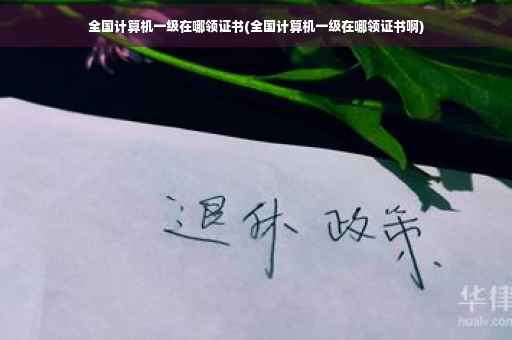 全国计算机一级在哪领证书(全国计算机一级在哪领证书啊)
退休 政策
华律
hualv.com